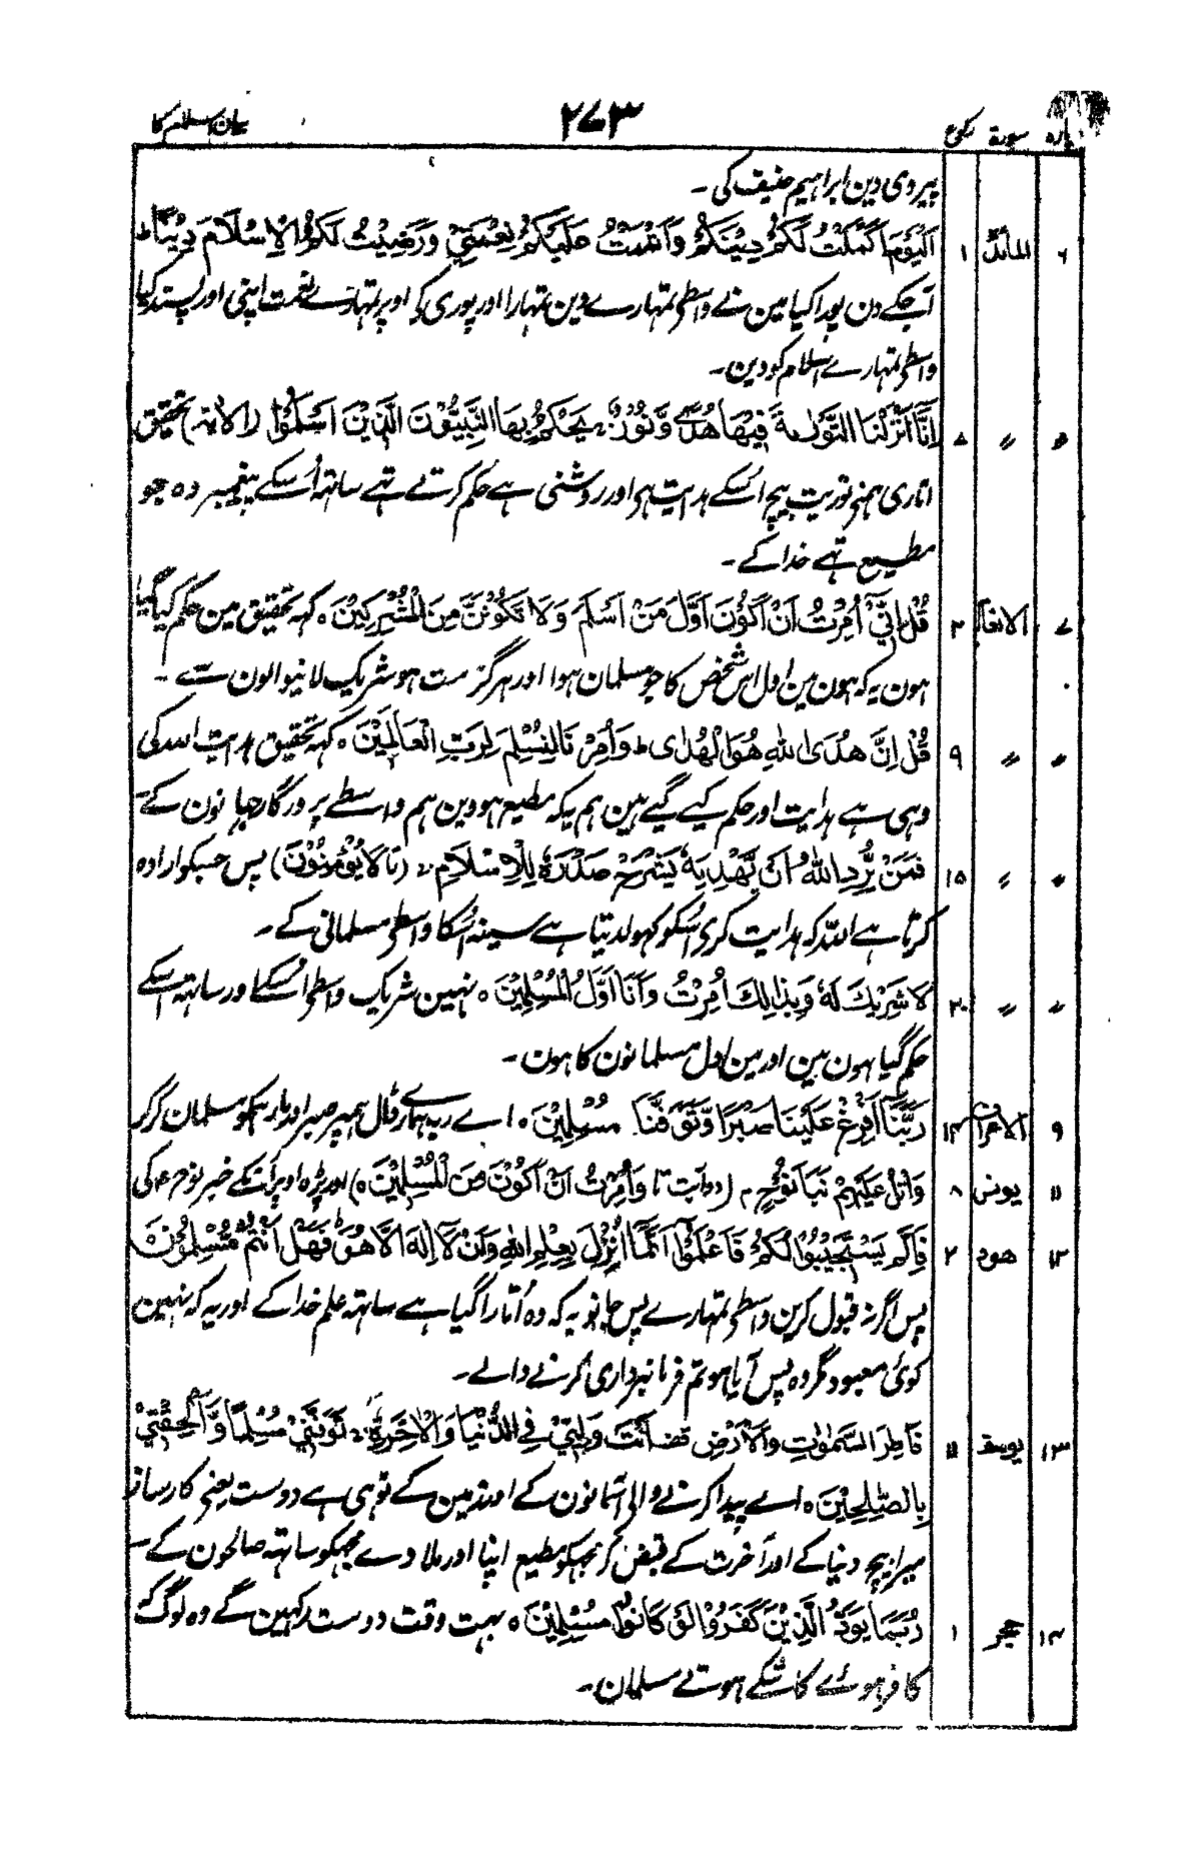 پارہ سورۃ رکوع ۲۷۳ بیان اسلام کا
پیروی دین ابراہیم حنیف کی ۔
۶ المائدۃ ۱ اَلْیَوْمَ اَکْمَلْتُ لَکُمْ دِیْنَکُمْ وَاَتْمَمْتُ عَلَیْکُمْ نِعْمَتِیْ وَرَضِیْتُ لَکُمُ الْاِسْلَامَ دِیْنًا ط
آجکے دن پورا کیا مین نے واسطی تمہارے دین تمہارا اور پوری کی اوپر تمہارے نعمت اپنی اور پسند کیا
واسطی تمہارے اسلام کو دین ۔
〃 〃 ۷ اِنَّا اَنْزَلْنَا التَّوْرٰىةَ فِیْهَا هُدًی وَّنُوْرٌ یَحْکُمُ بِهَا النَّبِیُّوْنَ الَّذِیْنَ اَسْلَمُوْا (الاٰیۃ) تحقیق
اتاری ہمنے توریت بیچ اسکے ہدایت ہی اور روشنی ہے حکم کرتے تہے ساتہہ اُسکے پیغمبر وہ جو
مطیع تہے خدا کے ۔
۷ الانعام ۲ قُلْ اِنِّیْ اُمِرْتُ اَنْ اَکُوْنَ اَوَّلَ مَنْ اَسْلَمَ وَلَا تَکُوْنَنَّ مِنَ الْمُشْرِکِیْنَ ہ کہہ تحقیق مین حکم کیا گیا
ہون یہ کہ ہون مین اول اس شخص کا جو مسلمان ہوا اور ہرگز مت ہو شریک لانیوالون سے ۔
〃 〃 ۹ قُلْ اِنَّ هُدَی اللهِ هُوَ الْهُدٰی ط وَاُمِرْنَا لِنُسْلِمَ لِرَبِّ الْعَالَمِیْنَ ہ کہہ تحقیق ہدایت اللہ کی
وہی ہے ہدایت اور حکم کیے گیے ہین ہم یہ کہ مطیع ہووین ہم واسطے پرورگار جہانون کے
〃 〃 ۱۵ فَمَنْ یُّرِدِ اللهُ اَنْ یَّهْدِیَهٗ یَشْرَحْ صَدْرَهٗ لِلْاِسْلَامِ (تا لَا یُؤْمِنُوْنَ) پس جسکو ارادہ
کرتا ہے اللہ کہ ہدایت کری اُسکو کہولدیتا ہے سینہ اُسکا واسطی مسلمانی کے ۔
〃 〃 ۲۰ لَا شَرِیْكَ لَهٗ وَبِذٰلِكَ اُمِرْتُ وَاَنَا اَوَّلُ الْمُسْلِمِیْنَ ہ نہین شریک واسطی اُسکے اور ساتہہ اسکے
حکم گیا ہون مین اور مین اول مسلمانون کا ہون ۔
۹ الاعراف ۱۴ رَبَّنَا اَفْرِغْ عَلَیْنَا صَبْرًا وَّتَوَفَّنَا مُسْلِمِیْنَ ہ اے رب ہمارے ڈال ہمپر صبر اور مار ہمکو مسلمان کرکر
۱۱ یونس ۸ وَاتْلُ عَلَیْهِمْ نَبَاَ نُوْحٍ م (دو آیت تا وَاُمِرْتُ اَنْ اَکُوْنَ مِنَ الْمُسْلِمِیْنَ ہ) اور پڑہ اوپر اُنکے خبر نوح ع کی
۱۲ ھود ۲ فَاِلَّمْ یَسْتَجِیْبُوْا لَکُمْ فَاعْلَمُوْا اَنَّمَا اُنْزِلَ بِعِلْمِ اللهِ وَاَنْ لَّا اِلٰهَ اِلَّا هُوَ فَهَلْ اَنْتُمْ مُّسْلِمُوْنَ ہ
پس اگر نہ قبول کرین واسطی تمہارے پس جانو یہ کہ وہ اُتارا گیا ہے ساتہہ علم خدا کے اور یہ کہ نہین
کوئی معبود مگر وہ پس آیا ہو تم فرمانبرداری کرنے والے ۔
۱۳ یوسف ۱۱ فَاطِرَ السَّمٰوٰتِ وَالْاَرْضِ اَنْتَ وَلِیّٖ فِی الدُّنْیَا وَالْاٰخِرَةِ تَوَفَّنِیْ مُسْلِمًا وَّاَلْحِقْنِیْ
بِالصّٰلِحِیْنَ ہ اے پیدا کرنے والی آسمانون کے اور زمین کے تو ہی ہے دوست یعنی کارساز
میرا بیچ دنیا کے اور آخرت کے قبض کر مجہکو مطیع اپنا اور ملا دے مجہکو ساتہہ صالحون کے ۔
۱۴ حجر ۱ رُبَمَا یَوَدُّ الَّذِیْنَ کَفَرُوْا لَوْ کَانُوْا مُسْلِمِیْنَ ہ بہت وقت دوست رکہین گے وہ لوگ کہ
کافر ہوئے کاشکے ہوتے مسلمان ۔